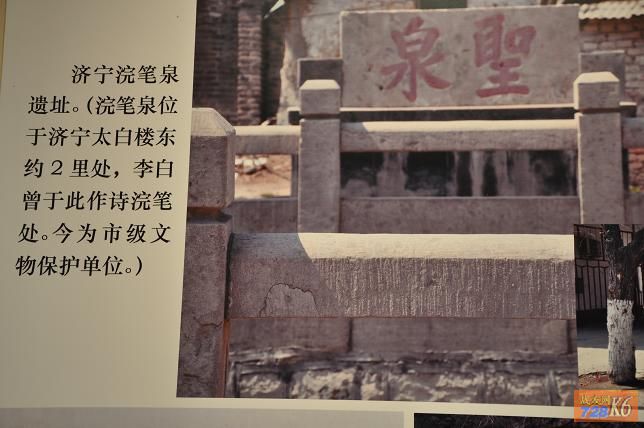 济宁浣笔泉
遗址。(浣笔泉位
于济宁太白楼东
约2里处，李白
曾于此作诗浣笔
处。今为市级文
物保护单位。)
泉聖
728K6